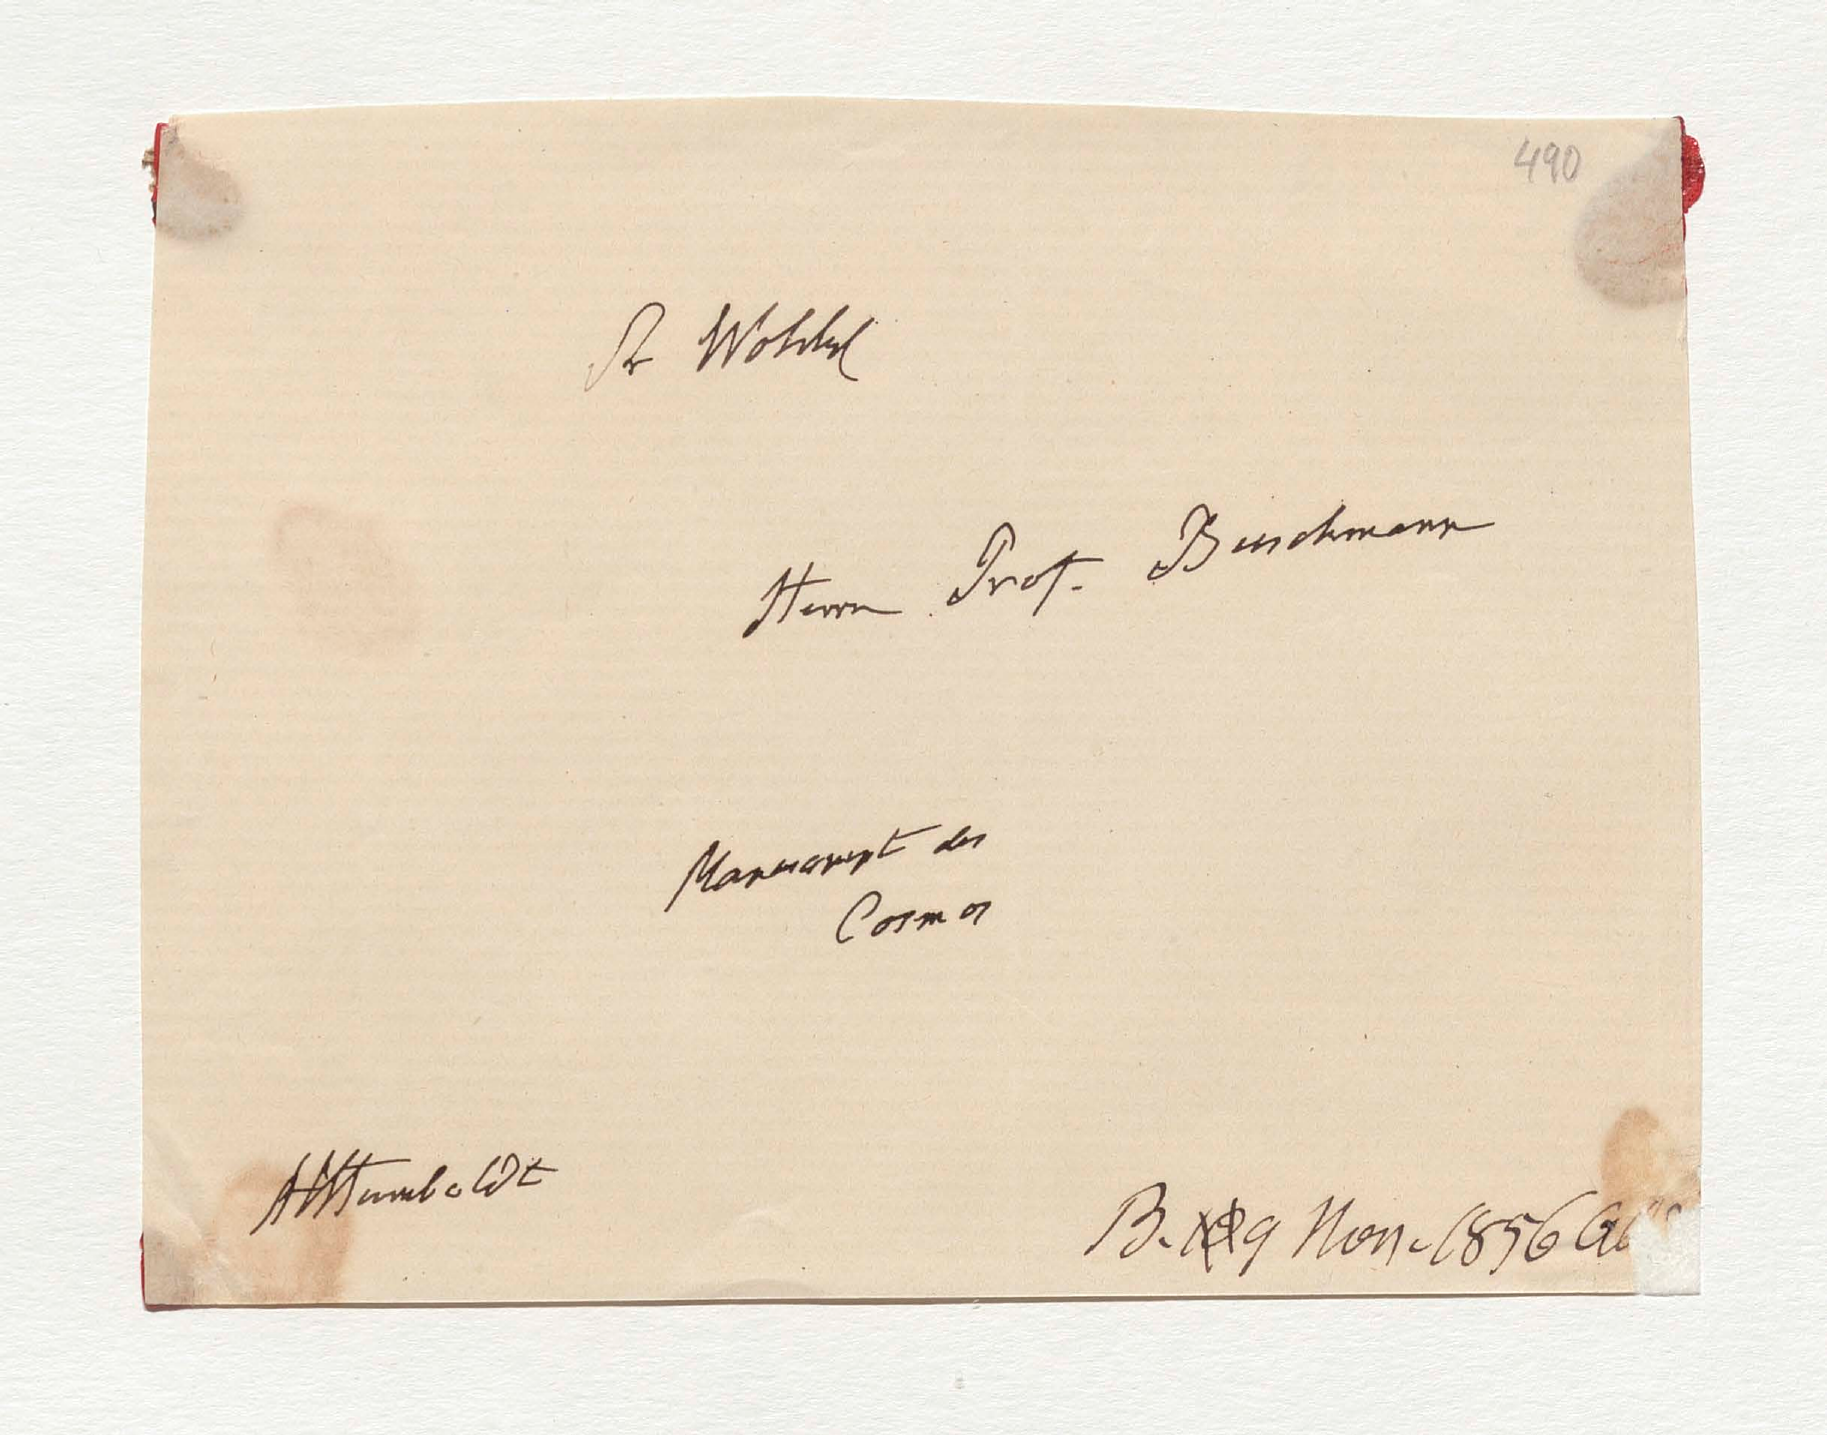 490
Sr Wohlgb
Herrn Prof. Buschmann
Manuscript des
Cosmos
AvHumboldt
B. 9 Nov. 1856